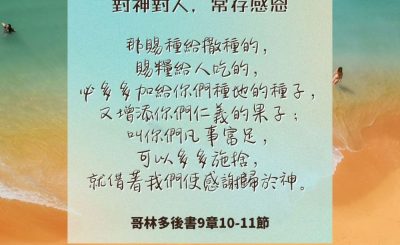 對神對人，常存感恩
那賜種給撒種的，
賜糧給人吃的，
必多多加給你們種地的種子，
又增添你們仁義的果子；
叫你們凡事富足，
可以多多施捨，
就借著我們使感謝歸於神。
哥林多後書9章10-11節